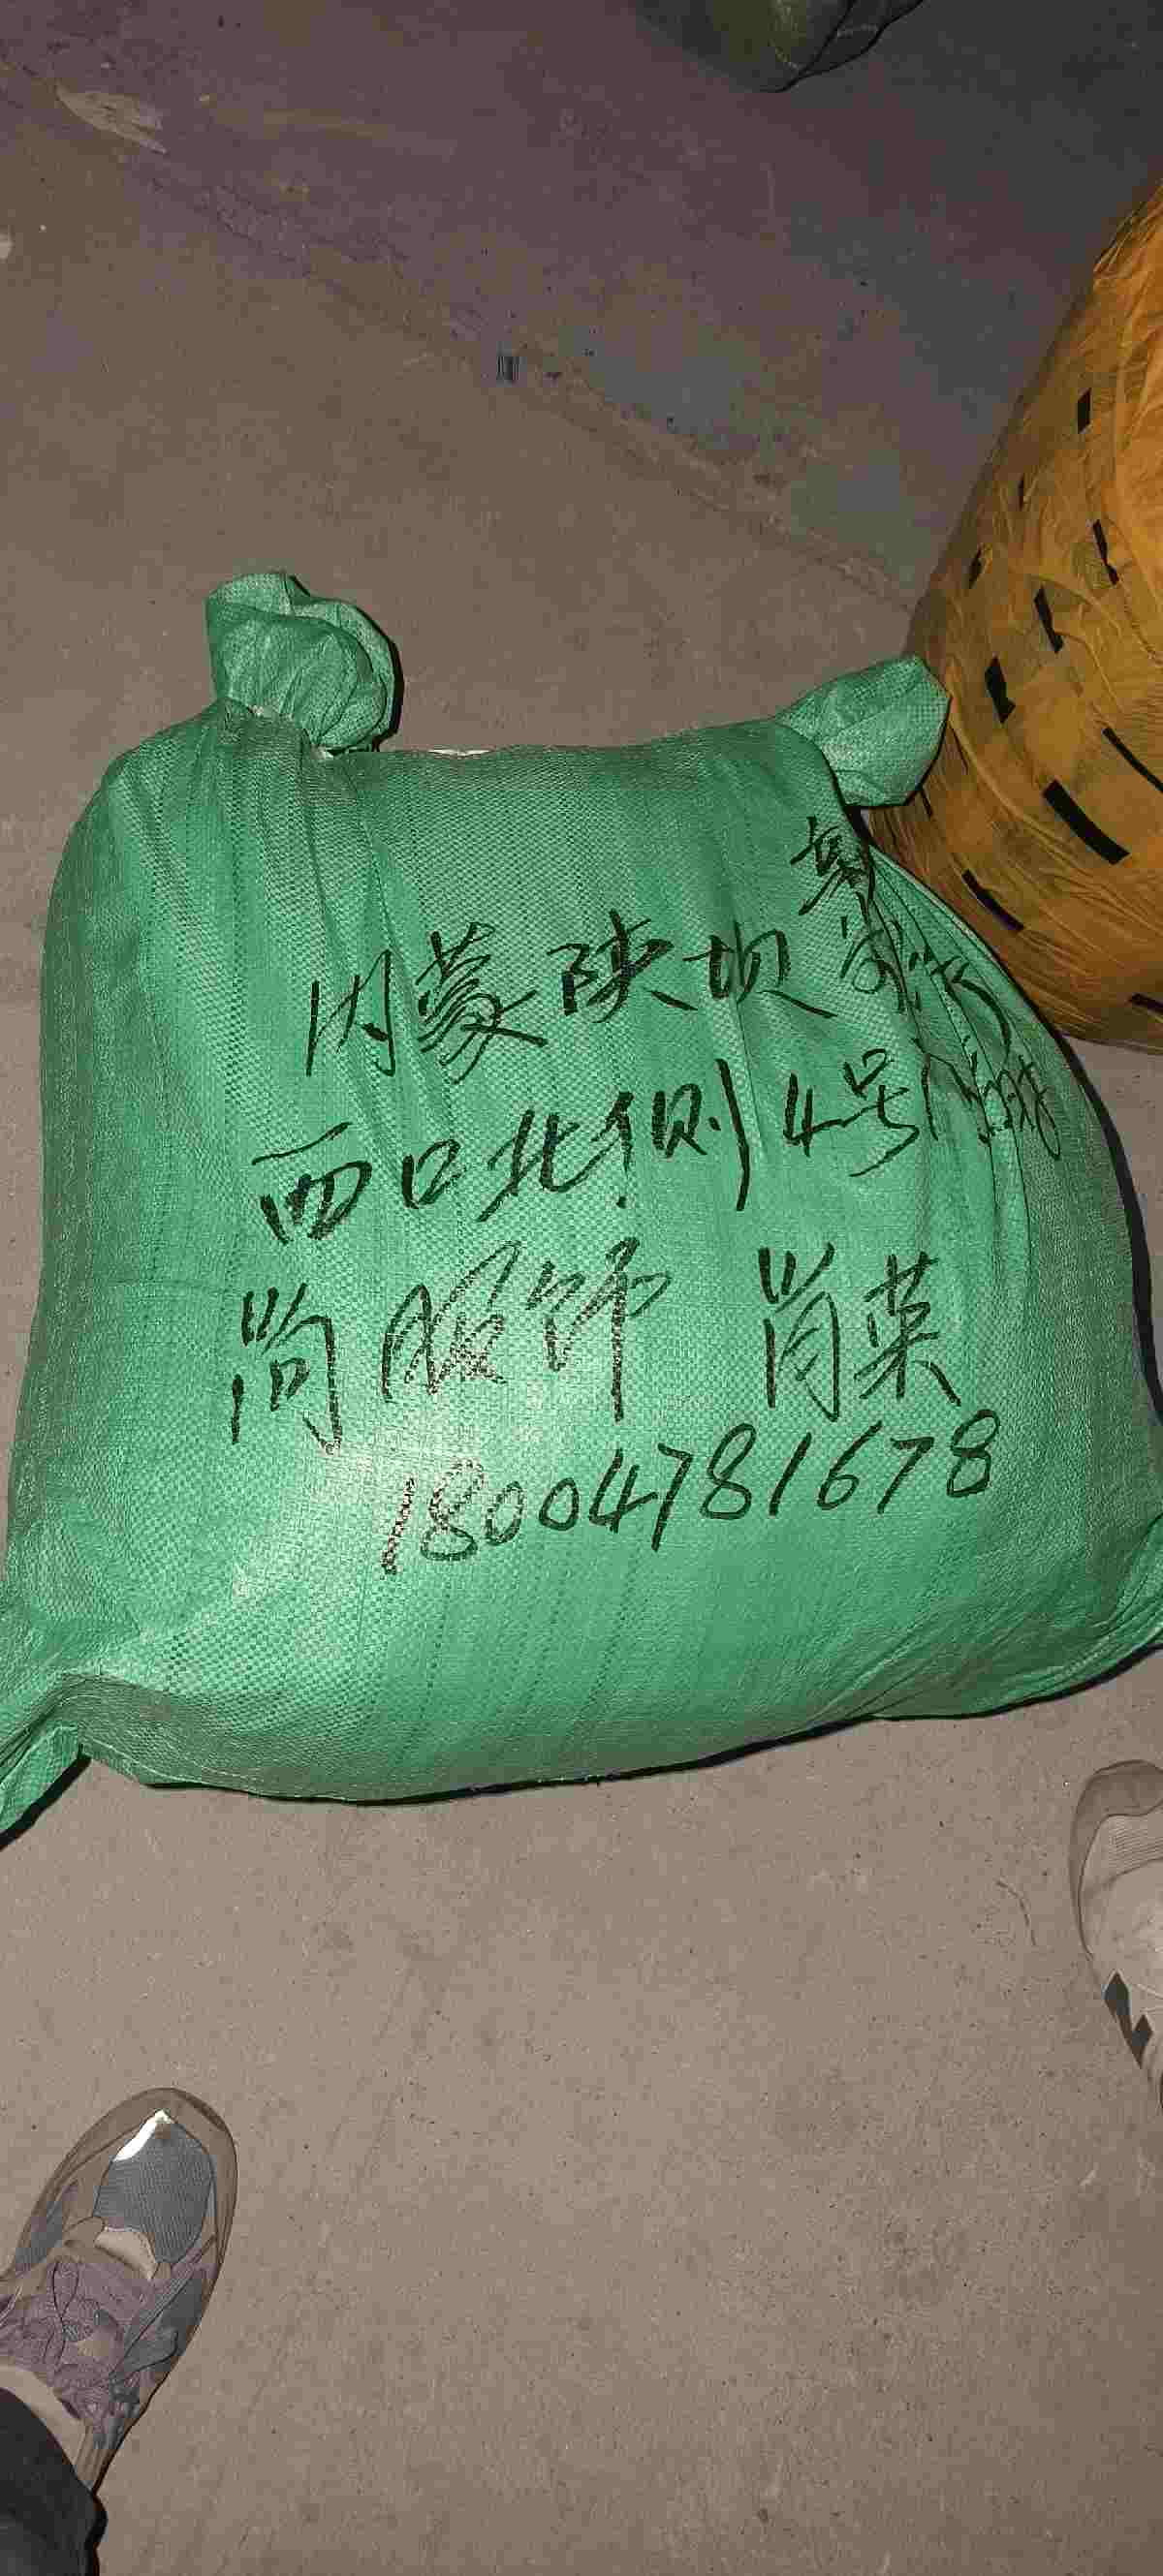 内蒙陕坝
西口北侧4号门
尚服饰 肖菜
18004781678